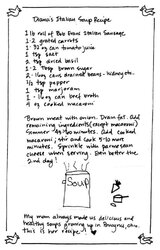 Diana's Italian Soup Recipe
1 lb roll of Bob Evans Italian Sausage
1-2 grated carrots
1- 32 oz can tomato juice
1 tsp salt
2 tsp dried basil
1-2 Tbsp brown sugar
2- 16 oz cans drained beans - kidney etc.
1/2 tsp pepper
1 tsp marjoram
1 - 16 oz can beef broth
4 oz cooked macaroni
Brown meat with onion. Drain fat. Add
remaining ingredients (except macaroni)
Simmer 45 minutes. Add cooked
macaroni; stir and cook 5-10 more
minutes. Sprinkle with parmesan
cheese when serving. Even better the
2nd day!
Soup
My mom always made us delicious and
healthy soups growing up in Penryns, Ohio.
This is her recipe.